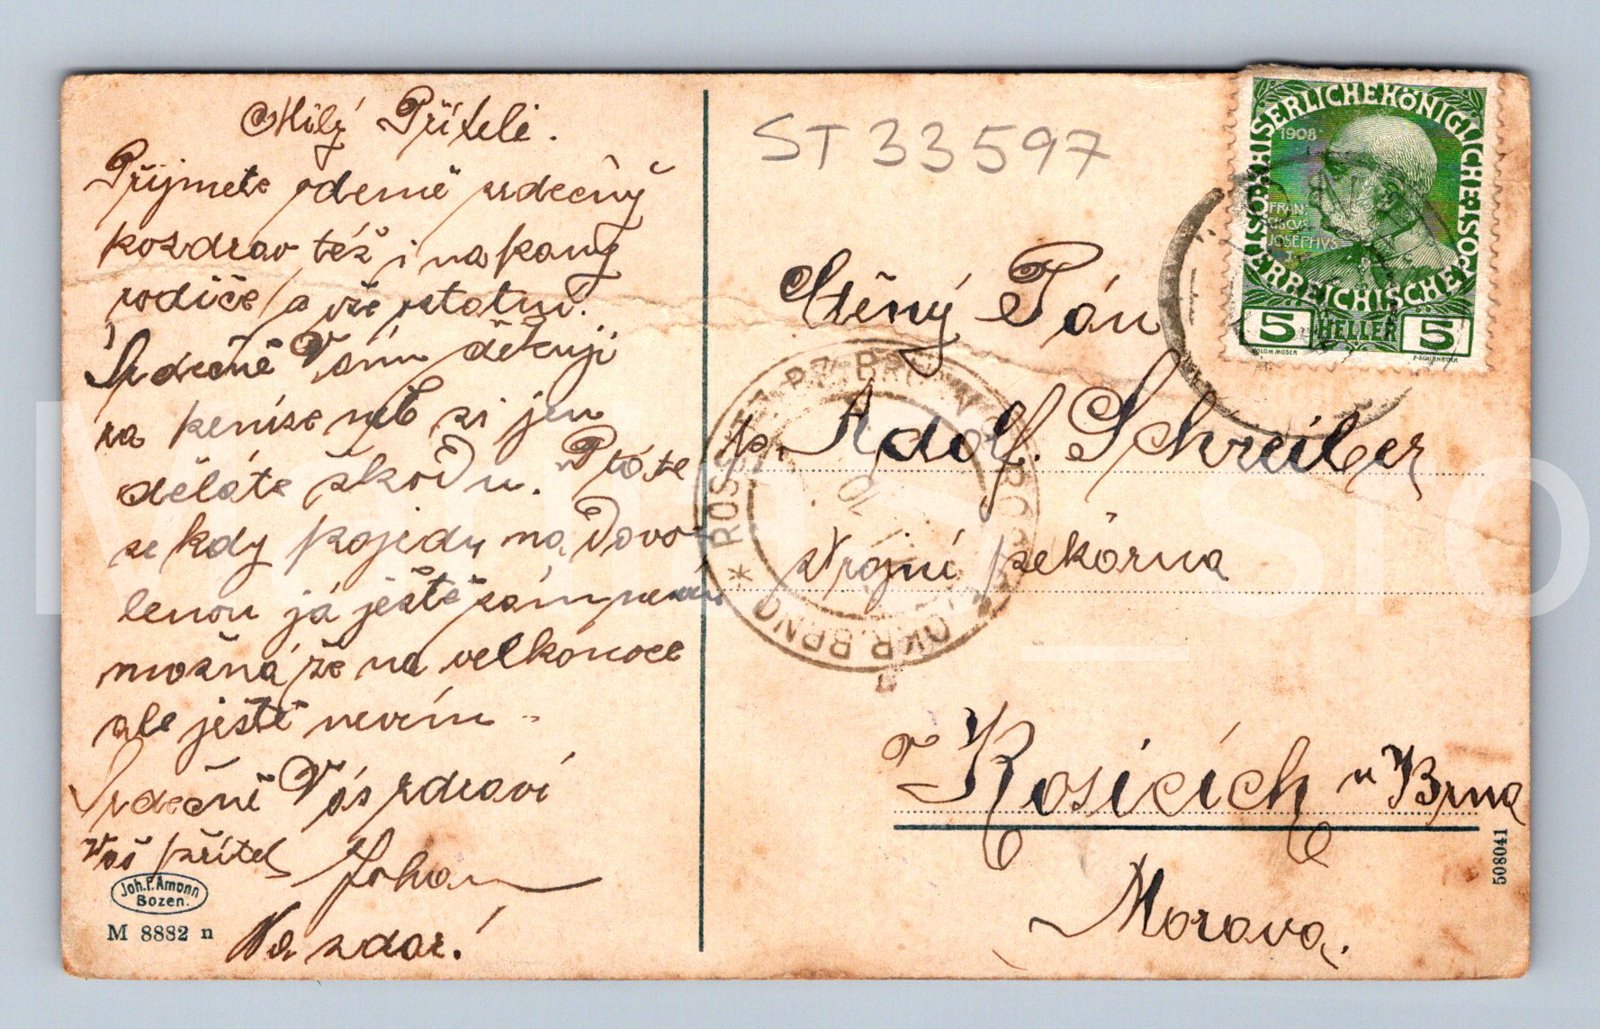 Milý Příteli.
Přijmete odemě srdečný
pozdrav též i na paný
rodiče a vše ostatní.
Srdečně Vám děkuji
za peníze neb si jen
děláte škodu. Ptáte
se kdy pojedu na dovo-
lenou já ještě sám nevím
možná že na velkonoce
ale ještě nevím
Srdečně Vás zdraví
Váš přítel Johan
Na zdar!
Joh. F. Amonn
Bozen.
M 8882 n
ST 33597
KAISERLICHEKÖNIGLICHE
ÖSTERREICHISCHE
1908
FRAN
CISCVS
JOSEPHVS
5 HELLER 5
KOLOM.MOSER
F.SCHIRNBÖCK
Ctěný Pán
p. Adolf. Schreiber
strojní pekárna
v Rosicích u Brna
Morava.
OKR. BRNO
508041